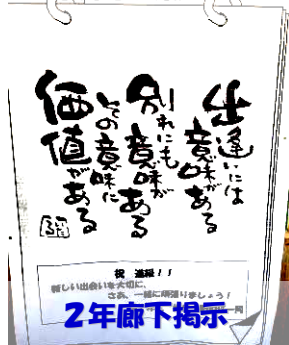 出逢いには
意味がある
別れにも
意味がある
その意味に
価値がある
祝 進級！！
新しい出会いを大切に、
さあ、一緒に頑張りましょう！
2年廊下掲示